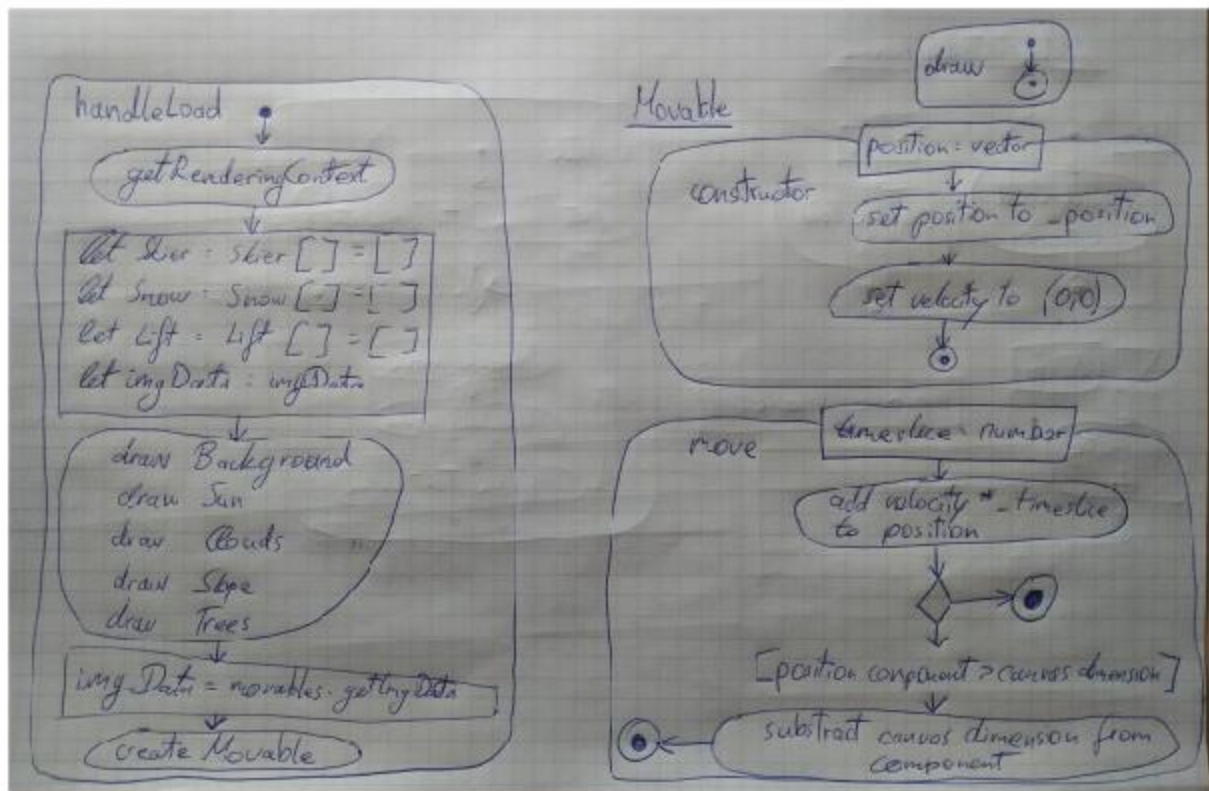 handleLoad
getRenderingContext
let Skier : Skier [ ] = [ ]
let Snow : Snow [ ] = [ ]
let Lift : Lift [ ] = [ ]
let imgData : imgData
draw Background
draw Sun
draw Clouds
draw Slope
draw Trees
imgData = movables.getImgData
create Movable
draw
Movable
position : vector
constructor
set position to _position
set velocity to (0,0)
timeslice : number
move
add velocity * _timeslice
to position
[position component > canvas dimension]
substract canvas dimension from
component